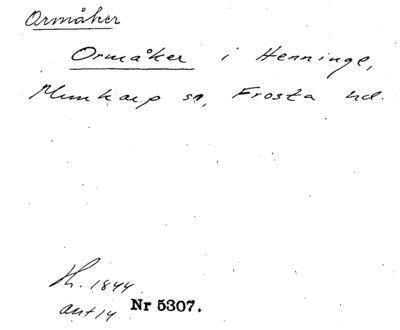 Ormåker
Ormåker i Henninge,
Munkarp sn, Frosta hd.
Th. 1844
ant 14 Nr 5307.